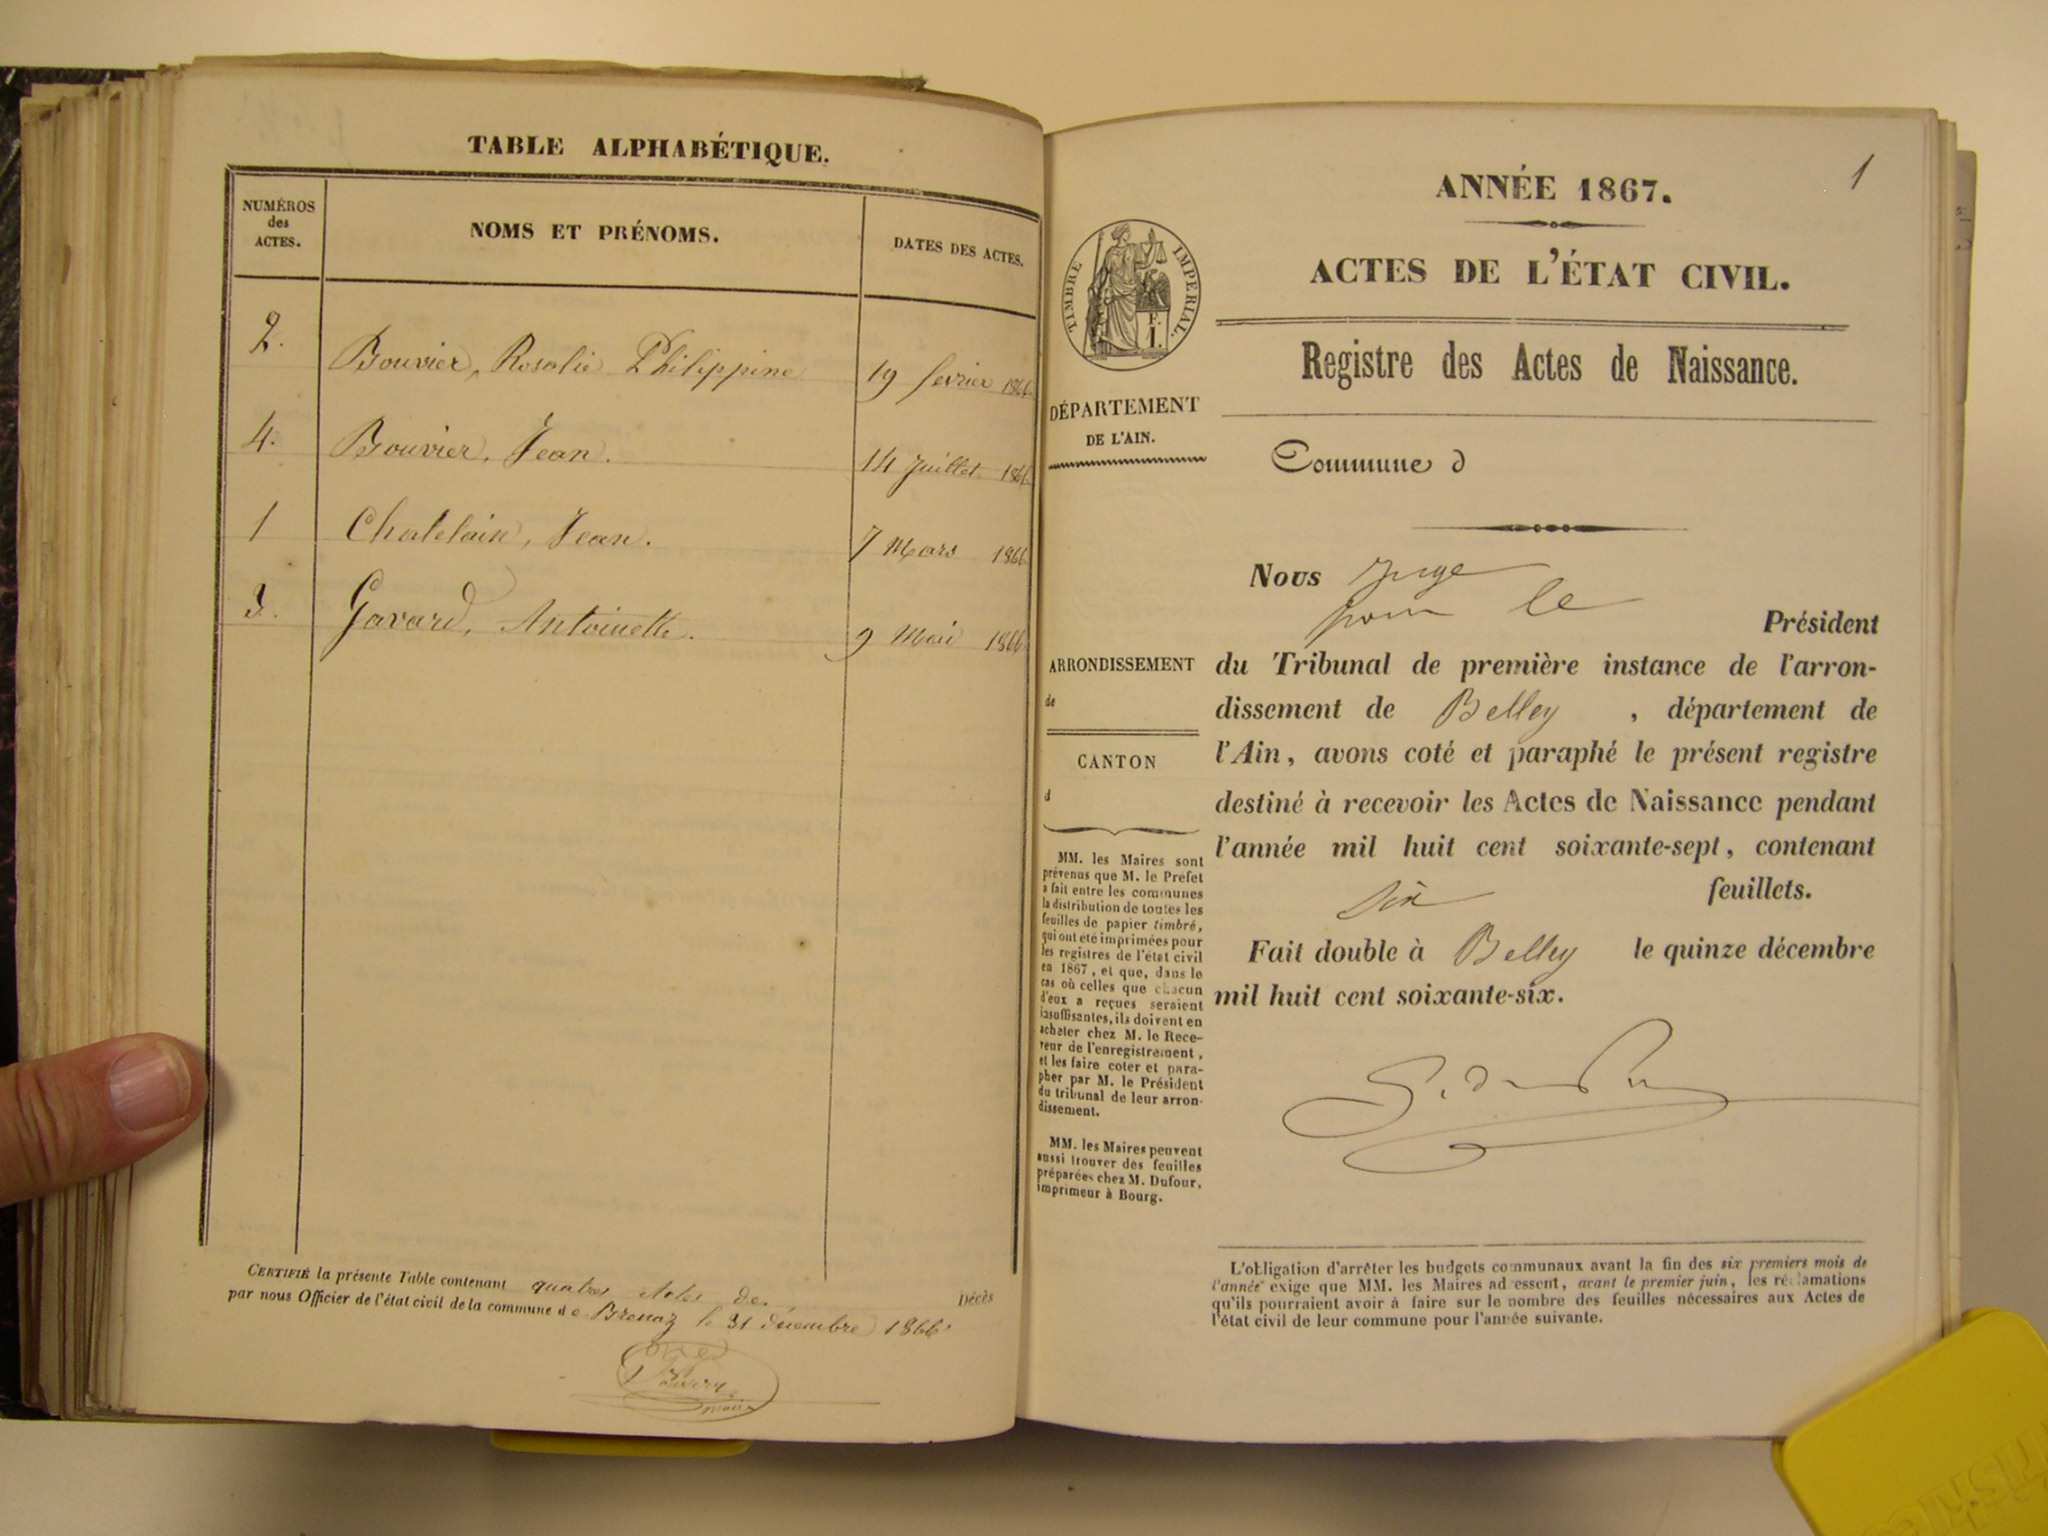 TABLE ALPHABÉTIQUE.
NUMÉROS
des
ACTES.
NOMS ET PRÉNOMS.
DATES DES ACTES.
2. Bouvier, Rosalie Philippine 19 fevrier 1866
4. Bouvier, Jean. 14 Juillet 1866
1 Chatelain, Jean. 7 Mars 1866
3. Gavard, Antoinette. 9 Mai 1866
CERTIFIÉ la présente Table contenant quatres Actes de Décès
par nous Officier de l'état civil de la commune de Brenaz le 31 décembre 1866
1
ANNÉE 1867.
ACTES DE L'ÉTAT CIVIL.
TIMBRE IMPÉRIAL.
Registre des Actes de Naissance.
DÉPARTEMENT
DE L'AIN.
Commune d
Nous juge
pour le
Président
ARRONDISSEMENT
de
CANTON
d
du Tribunal de première instance de l'arron-
dissement de Belley, département de
l'Ain, avons coté et paraphé le présent registre
destiné à recevoir les Actes de Naissance pendant
l'année mil huit cent soixante-sept, contenant
Six feuillets.
Fait double à Belley le quinze décembre
mil huit cent soixante-six.
MM. les Maires sont
prévenus que M. le Préfet
a fait entre les communes
la distribution de toutes les
feuilles de papier timbré,
qui ont été imprimées pour
les registres de l'état civil
en 1867, et que, dans le
cas où celles que chacun
d'eux a reçues seraient
insuffisantes, ils doivent en
acheter chez M. le Rece-
veur de l'enregistrement,
et les faire coter et para-
pher par M. le Président
du tribunal de leur arron-
dissement.
MM. les Maires peuvent
aussi trouver des feuilles
préparées chez M. Dufour,
imprimeur à Bourg.
L'obligation d'arrêter les budgets communaux avant la fin des six premiers mois de
l'année exige que MM. les Maires adressent, avant le premier juin, les réclamations
qu'ils pourraient avoir à faire sur le nombre des feuilles nécessaires aux Actes de
l'état civil de leur commune pour l'année suivante.